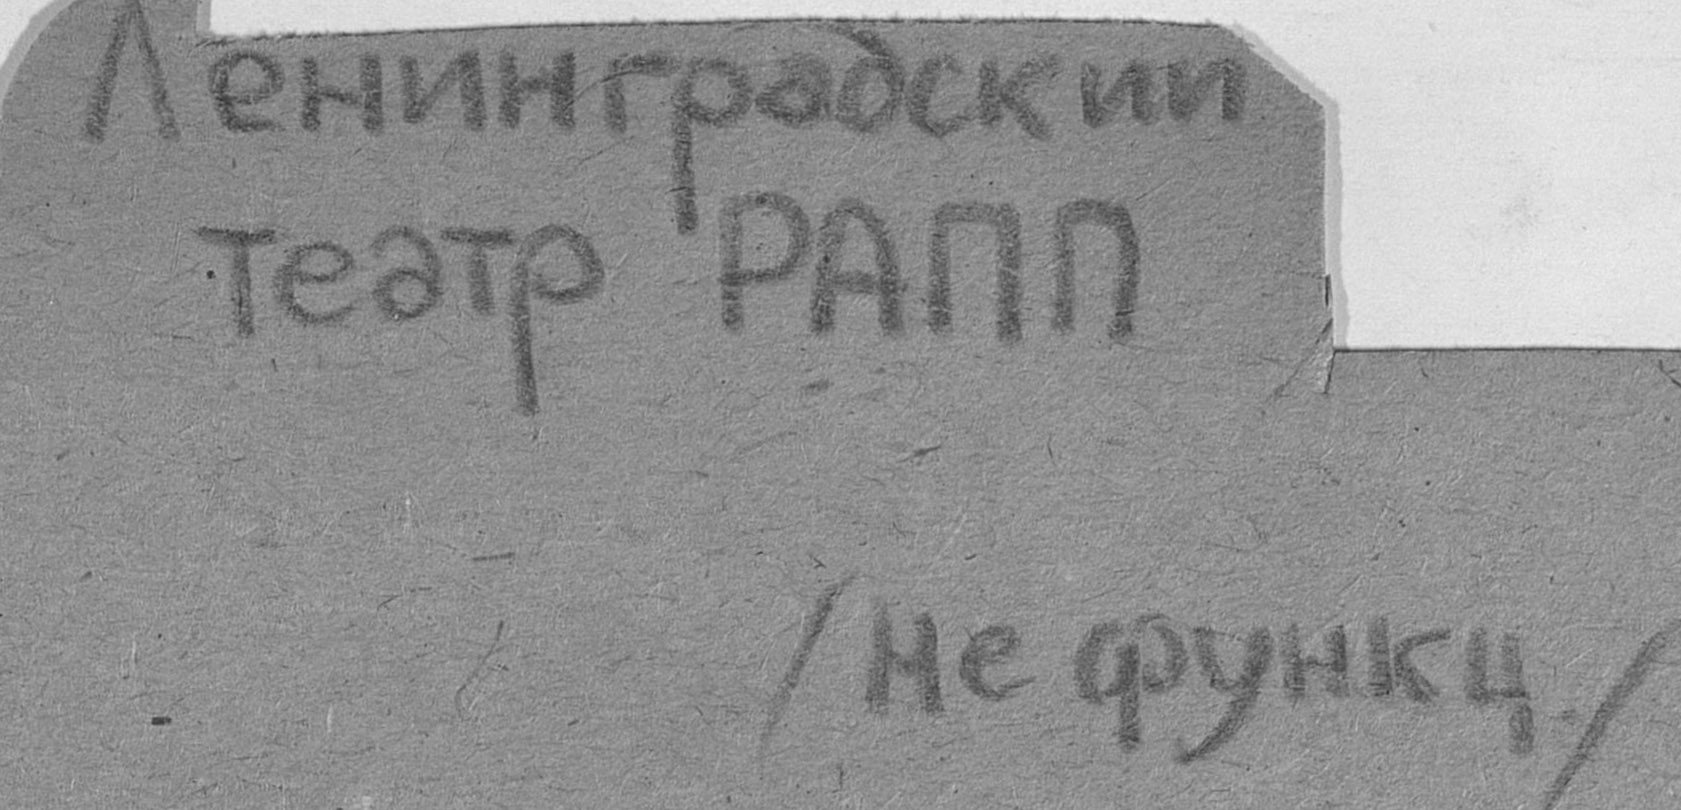 Ленинградский
театр РАПП
/Не функц./